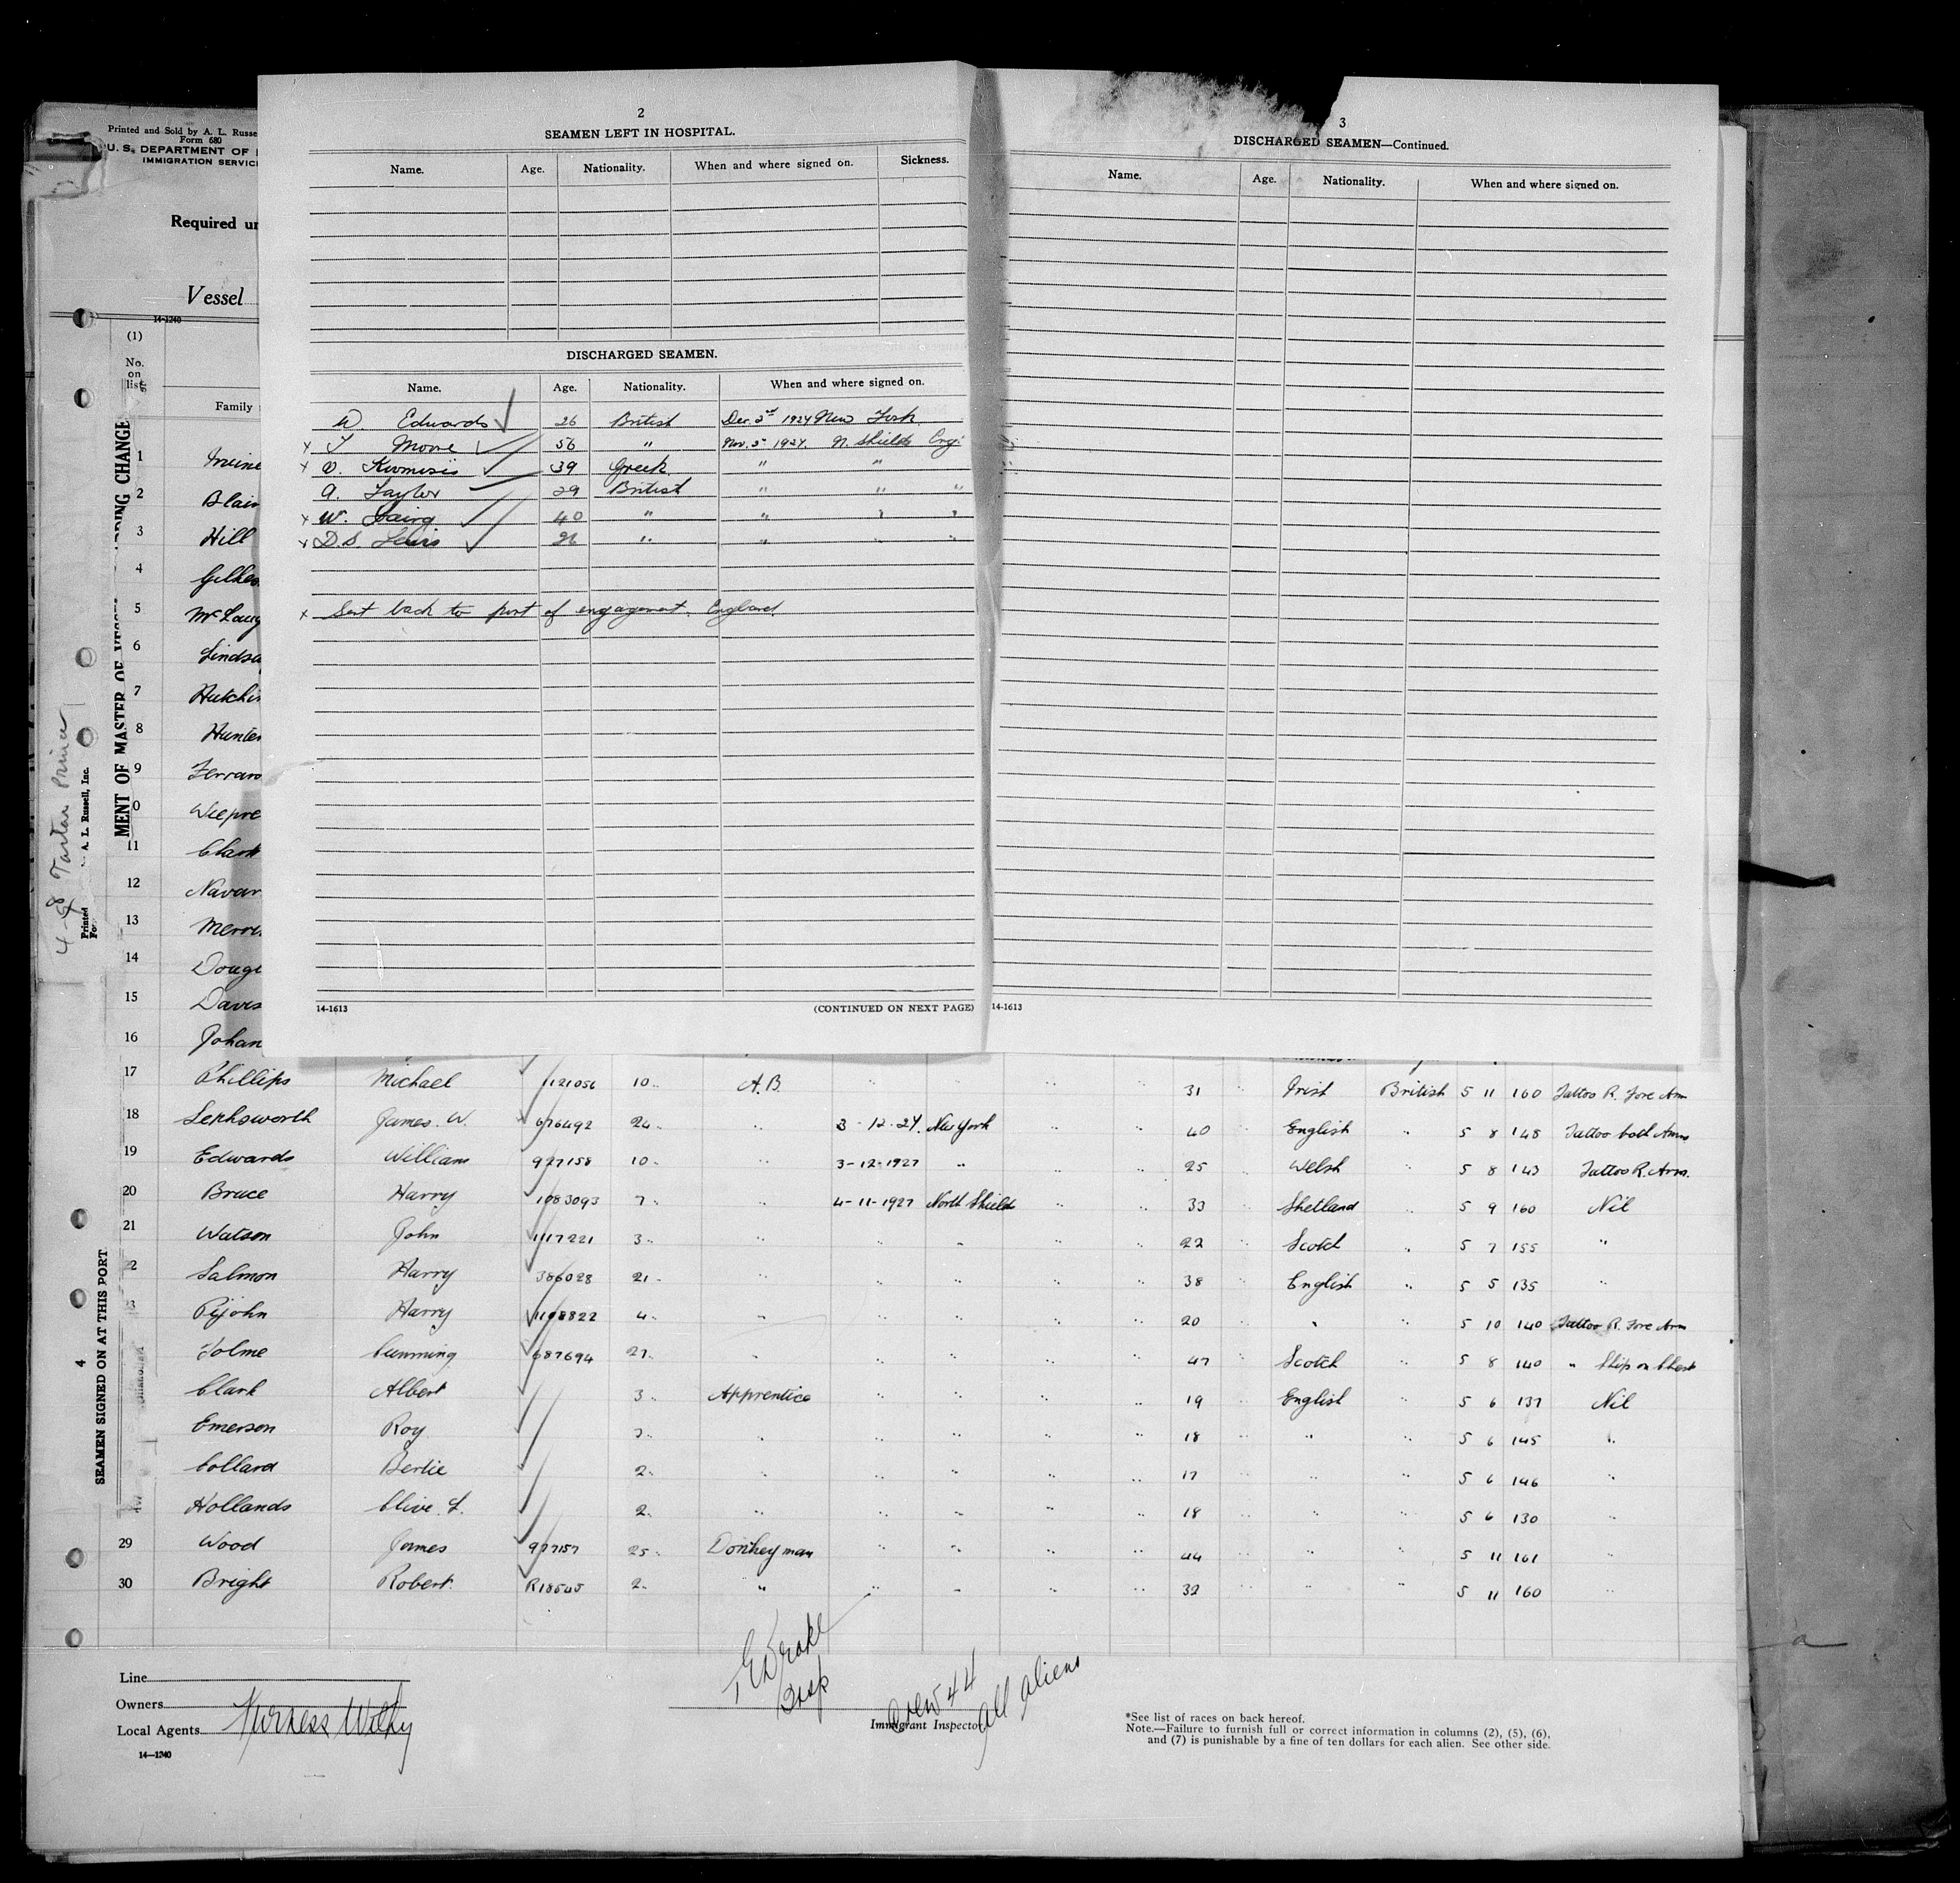 Printed and Sold by A. L. Russe
Form 680
U. S. DEPARTMENT OF
IMMIGRATION SERVIC
Required un
Vessel
14-1240
(1)
No. on list
Family
MENT OF MASTER OF VESSEL
SEAMEN SIGNED ON AT THIS PORT
4
4-8 Tartar Prince
Printed
A. L. Russell, Inc.
2
SEAMEN LEFT IN HOSPITAL.
Name. Age. Nationality. When and where signed on. Sickness.
DISCHARGED SEAMEN.
Name. Age. Nationality. When and where signed on.
W. Edwards 26 British Dec. 3rd 1924 New York.
x T Moore 56 " Nov. 5 1924. N. Shields Eng.
x 39 Greek. " "
A. Taylor 29 British " " "
x W. Laing 40 " " " "
x D.S. Lewis 26 " " " "
x Sent back to port of engagement. England
14-1613
(CONTINUED ON NEXT PAGE)
3
DISCHARGED SEAMEN—Continued.
Name. Age. Nationality. When and where signed on.
14-1613
1 Irvine
2 Blair
3 Hill
4 Gilkes
5 McLaug
6 Lindsa
7 Hutchi
8 Hunter
9 Ferraro
0 Weepre
11 Clark
12 Navar
13 Merri
14 Doug
15 Davis
16 Johan
17 Phillips Michael 1121056 10 " A.B. " " " 31 " Irish British 5 11 160 Tattoo R. Fore Arm
18 Lephsworth James. W. 676492 24 " " 3-12-24. New York " " 40 English " 5 8 148 Tattoo both Arms
19 Edwards William 927158 10 " " 3-12-1927 " " " 25 Welsh " 5 8 143 Tattoo R. Arm.
20 Bruce Harry 1083093 7 " " 4-11-1927 North Shields " " 33 Shetland " 5 9 160 Nil
21 Watson John 1117221 3 " " " " " " 22 Scotch " 5 7 155 "
22 Salmon Harry 386028 21 " " " " " " 38 " English " 5 5 135 "
23 Pijohn Harry 1108822 4 " " " " " 20 " " 5 10 140 Tattoo R. Fore Arm
Tolme Cumming 687694 27 " " " " " " 47 " Scotch " 5 8 140 " Ship on Chest
Clark Albert 3 " Apprentice " " " " 19 " English " 5 6 137 Nil
Emerson Roy 3 " " " " " " 18 " " " 5 6 145 "
Collard Bertie 2 " " " " " " 17 " " " 5 6 146 "
Hollands Clive. L. 2 " " " " " " 18 " " 5 6 130 "
29 Wood James 977157 25 " Donkeyman " " " " 44 " " " 5 11 161 "
30 Bright Robert. R18545 2 " " " " " " 32 " " " 5 11 160 "
Line
Owners
Local Agents Furness Withy
14—1240
Immigrant Inspector
Crew 44
all aliens
*See list of races on back hereof.
Note.—Failure to furnish full or correct information in columns (2), (5), (6),
and (7) is punishable by a fine of ten dollars for each alien. See other side.